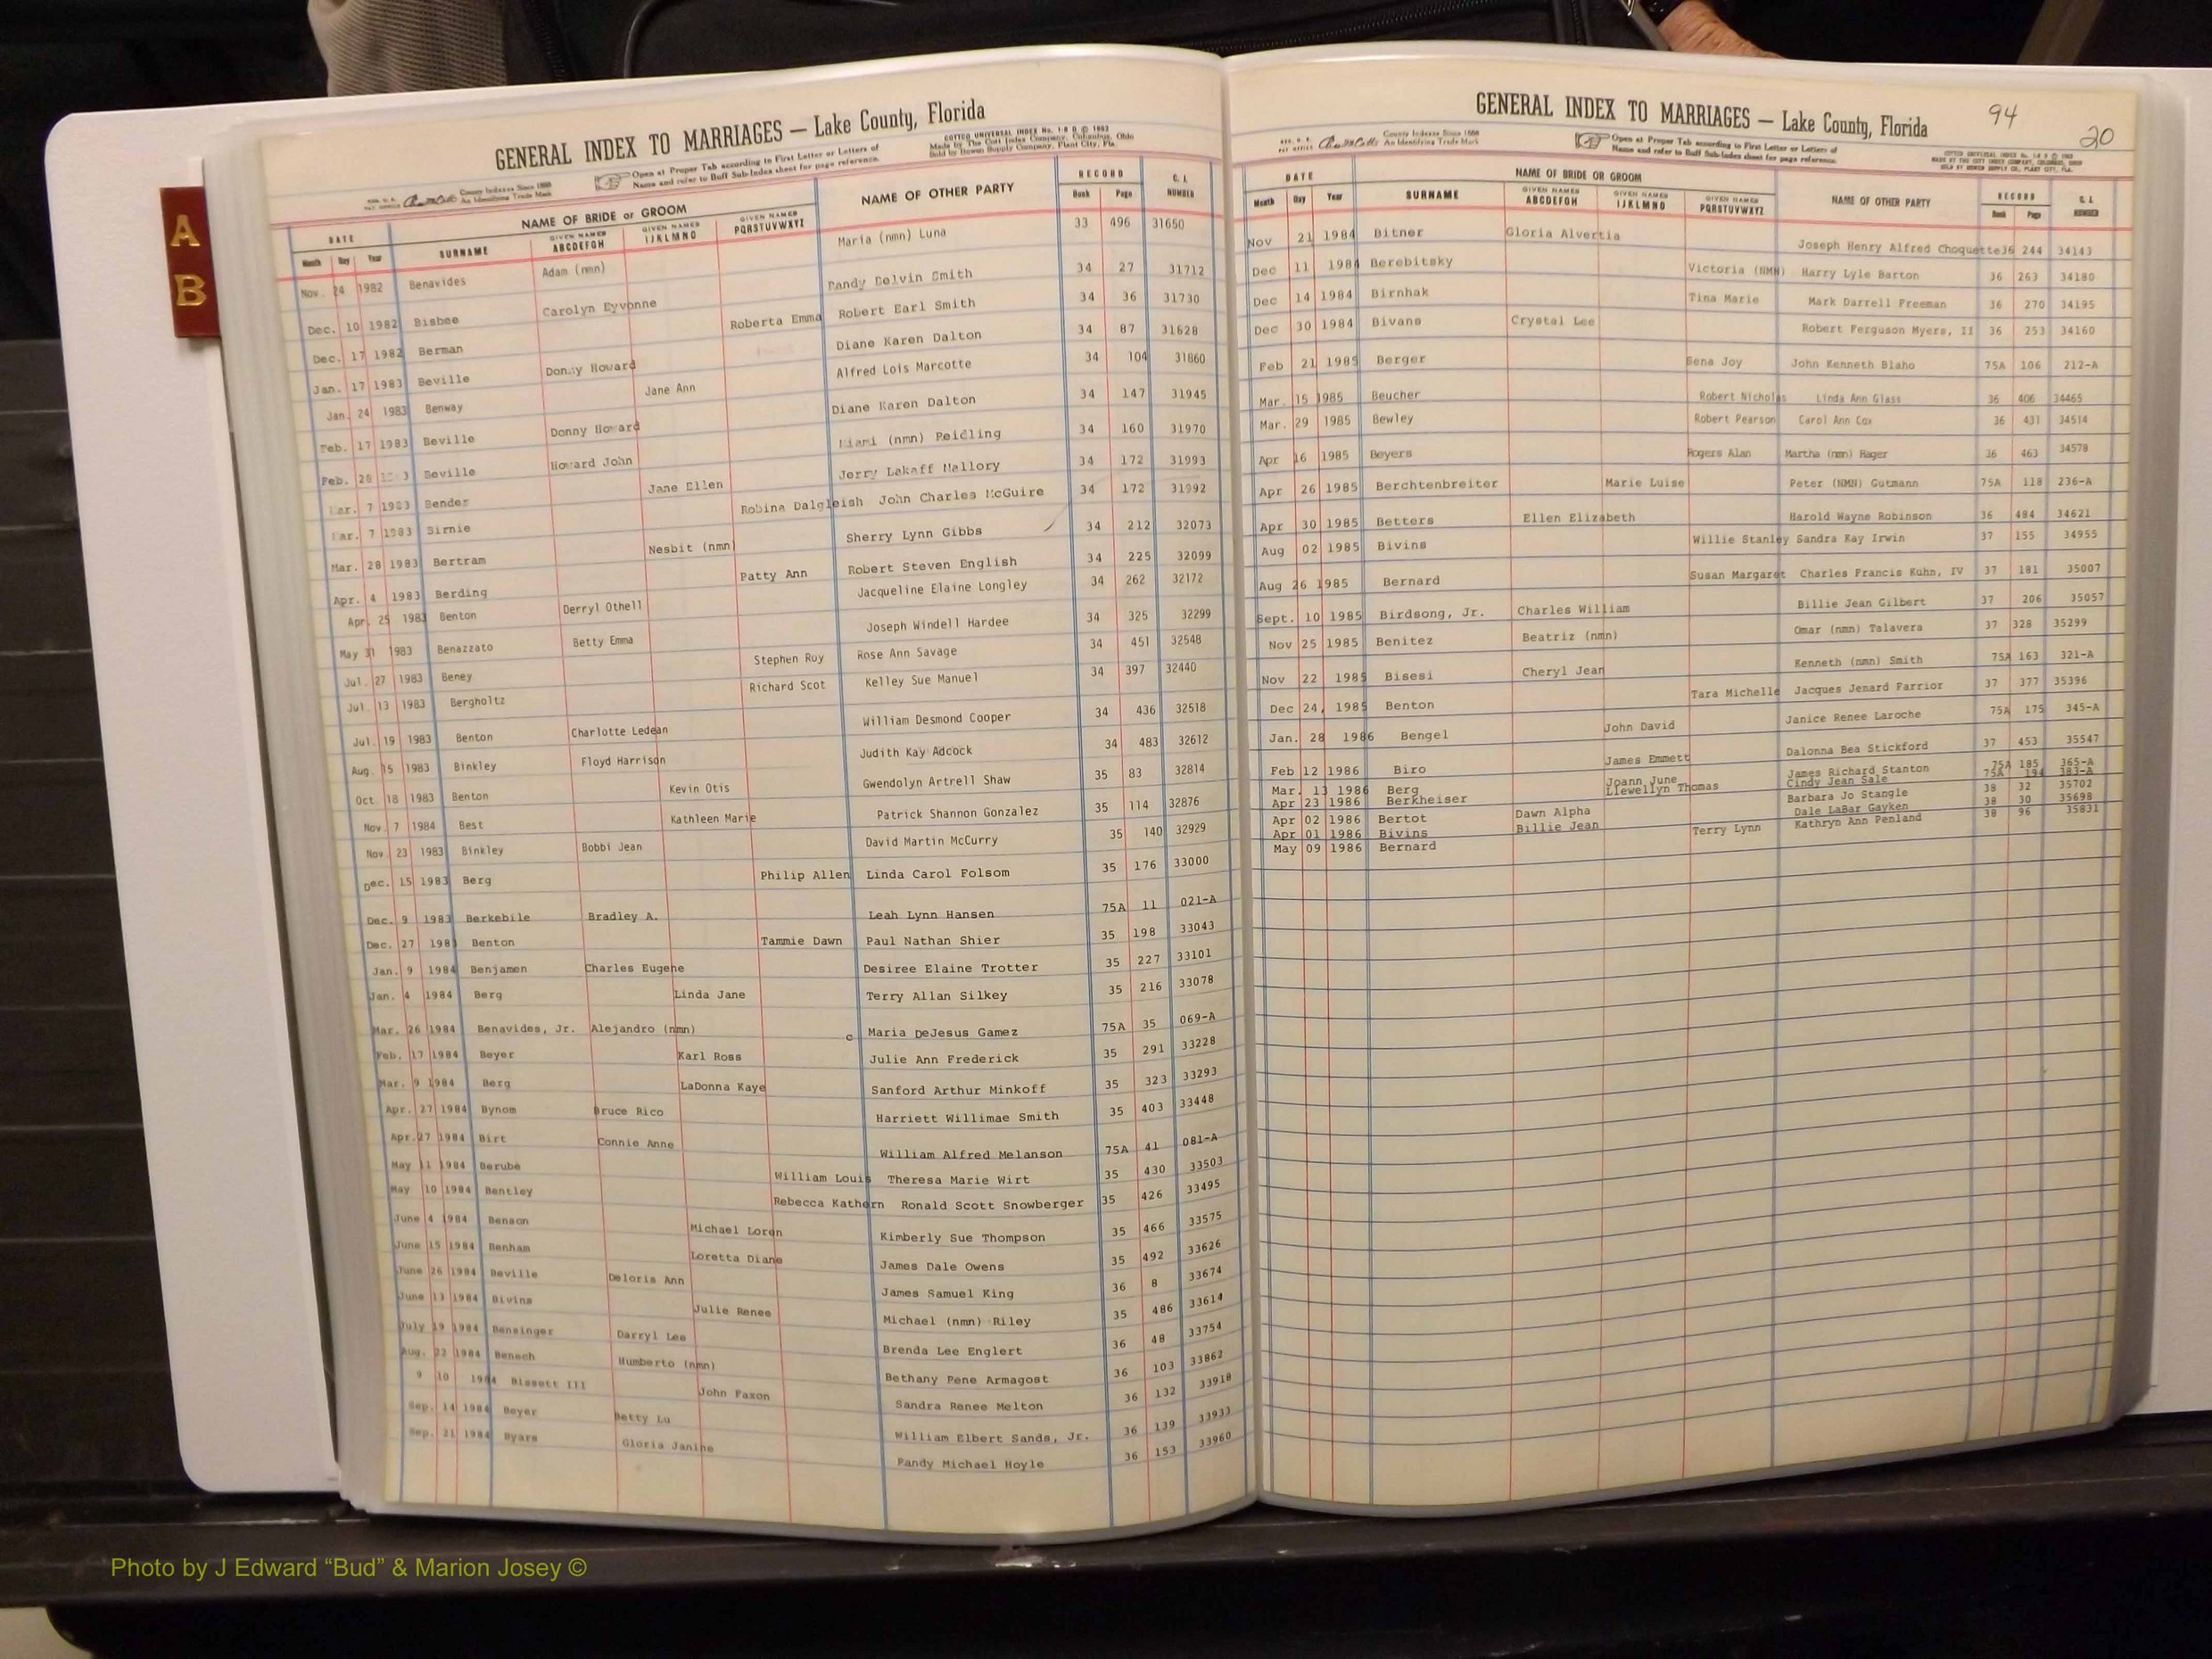 A
B
GENERAL INDEX TO MARRIAGES — Lake County, Florida
County Indexes Since 1888
An Identifying Trade Mark
Open at Proper Tab according to First Letter or Letters of
Name and refer to Buff Sub-Index sheet for page reference.
COTTCO UNIVERSAL INDEX No.
Made by The Cott Index Company, Columbus, Ohio
Sold by Bowen Supply Company, Plant City, Fla.
DATE NAME OF BRIDE or GROOM NAME OF OTHER PARTY RECORD C. I. NUMBER
Month Day Year SURNAME GIVEN NAMES ABCDEFGH GIVEN NAMES IJKLMNO GIVEN NAMES PQRSTUVWXYZ Book Page
Nov. 24 1982 Benavides Adam (nmn) Maria (nmn) Luna 33 496 31650
Dec. 10 1982 Bisbee Carolyn Eyvonne Randy Delvin Smith 34 27 31712
Dec. 17 1982 Berman Roberta Emma Robert Earl Smith 34 36 31730
Jan. 17 1983 Beville Donny Howard Diane Karen Dalton 34 87 31828
Jan. 24 1983 Benway Jane Ann Alfred Lois Marcotte 34 104 31860
Feb. 17 1983 Beville Donny Howard Diane Karen Dalton 34 147 31945
Feb. 28 Beville Howard John (nmn) Peidling 34 160 31970
Mar. 7 1983 Bender Jane Ellen Jerry Lakaff Mallory 34 172 31993
Mar. 7 1983 Birnie Robina Dalgleish John Charles McGuire 34 172 31992
Mar. 28 1983 Bertram Nesbit (nmn) Sherry Lynn Gibbs 34 212 32073
Apr. 4 1983 Berding Patty Ann Robert Steven English 34 225 32099
Apr. 25 1983 Benton Derryl Othell Jacqueline Elaine Longley 34 262 32172
May 31 1983 Benazzato Betty Emma Joseph Windell Hardee 34 325 32299
Jul. 27 1983 Beney Stephen Roy Rose Ann Savage 34 451 32548
Jul 13 1983 Bergholtz Richard Scot Kelley Sue Manuel 34 397 32440
Jul. 19 1983 Benton Charlotte Ledean William Desmond Cooper 34 436 32518
Aug. 15 1983 Binkley Floyd Harrison Judith Kay Adcock 34 483 32612
Oct. 18 1983 Benton Kevin Otis Gwendolyn Artrell Shaw 35 83 32814
Nov. 7 1984 Best Kathleen Marie Patrick Shannon Gonzalez 35 114 32876
Nov. 23 1983 Binkley Bobbi Jean David Martin McCurry 35 140 32929
Dec. 15 1983 Berg Philip Allen Linda Carol Folsom 35 176 33000
Dec. 9 1983 Berkebile Bradley A. Leah Lynn Hansen 75A 11 021-A
Dec. 27 198 Benton Tammie Dawn Paul Nathan Shier 35 198 33043
Jan. 9 1984 Benjamen Charles Eugene Desiree Elaine Trotter 35 227 33101
Jan. 4 1984 Berg Linda Jane Terry Allan Silkey 35 216 33078
Mar. 26 1984 Benavides, Jr. Alejandro (nmn) c Maria DeJesus Gamez 75A 35 069-A
Feb. 17 1984 Beyer Karl Ross Julie Ann Frederick 35 291 33228
Mar. 9 1984 Berg LaDonna Kaye Sanford Arthur Minkoff 35 323 33293
Apr. 27 1984 Bynom Bruce Rico Harriett Willimae Smith 35 403 33448
Apr. 27 1984 Birt Connie Anne William Alfred Melanson 75A 41 081-A
May 11 1984 Berube William Louis Theresa Marie Wirt 35 430 33503
May 10 1984 Bentley Rebecca Kathern Ronald Scott Snowberger 35 426 33495
June 4 1984 Benson Michael Loren Kimberly Sue Thompson 35 466 33575
June 15 1984 Benham Loretta Diane James Dale Owens 35 492 33626
June 26 1984 Beville Deloris Ann James Samuel King 36 8 33674
June 13 1984 Bivins Julie Renee Michael (nmn) Riley 35 486 33614
July 19 1984 Bensinger Darryl Lee Brenda Lee Englert 36 48 33754
Aug. 22 1984 Benech Humberto (nmn) Bethany Pene Armagost 36 103 33862
9 10 1984 Bissett III John Paxon Sandra Renee Melton 36 132 33918
Sep. 14 1984 Beyer Betty Lu William Elbert Sands, Jr. 36 139 33933
Sep. 21 1984 Byars Gloria Janine Randy Michael Hoyle 36 153 33960
GENERAL INDEX TO MARRIAGES — Lake County, Florida 94 20
County Indexes Since 1888
An Identifying Trade Mark
Open at Proper Tab according to First Letter or Letters of
Name and refer to Buff Sub-Index sheet for page reference.
DATE NAME OF BRIDE OR GROOM NAME OF OTHER PARTY RECORD C. I. NUMBER
Month Day Year SURNAME GIVEN NAMES ABCDEFGH GIVEN NAMES IJKLMNO GIVEN NAMES PQRSTUVWXYZ Book Page
Nov 21 1984 Bitner Gloria Alvertia Joseph Henry Alfred Choquette 36 244 34143
Dec 11 1984 Berebitsky Victoria (NMN) Harry Lyle Barton 36 263 34180
Dec 14 1984 Birnhak Tina Marie Mark Darrell Freeman 36 270 34195
Dec 30 1984 Bivans Crystal Lee Robert Ferguson Myers, II 36 253 34160
Feb 21 1985 Berger Sena Joy John Kenneth Blaho 75A 106 212-A
Mar. 15 1985 Beucher Robert Nicholas Linda Ann Glass 36 406 34465
Mar. 29 1985 Bewley Robert Pearson Carol Ann Cox 36 431 34514
Apr 16 1985 Beyers Rogers Alan Martha (nmn) Hager 36 463 34578
Apr 26 1985 Berchtenbreiter Marie Luise Peter (NMN) Gutmann 75A 118 236-A
Apr 30 1985 Betters Ellen Elizabeth Harold Wayne Robinson 36 484 34621
Aug 02 1985 Bivins Willie Stanley Sandra Kay Irwin 37 155 34955
Aug 26 1985 Bernard Susan Margaret Charles Francis Kuhn, IV 37 181 35007
Sept. 10 1985 Birdsong, Jr. Charles William Billie Jean Gilbert 37 206 35057
Nov 25 1985 Benitez Beatriz (nmn) Omar (nmn) Talavera 37 328 35299
Nov 22 1985 Bisesi Cheryl Jean Kenneth (nmn) Smith 75A 163 321-A
Dec 24, 1985 Benton Tara Michelle Jacques Jenard Farrior 37 377 35396
Jan. 28 1986 Bengel John David Janice Renee Laroche 75A 175 345-A
Feb 12 1986 Biro James Emmett Dalonna Bea Stickford 37 453 35547
Mar. 13 1986 Berg Joann June James Richard Stanton 75A 185 365-A
Apr 23 1986 Berkheiser Llewellyn Thomas Cindy Jean Sale 75A 194 383-A
Apr 02 1986 Bertot Dawn Alpha Barbara Jo Stangle 38 32 35702
Apr 01 1986 Bivins Billie Jean Dale LaBar Gayken 38 30 35698
May 09 1986 Bernard Terry Lynn Kathryn Ann Penland 38 96 35831
Photo by J Edward “Bud” & Marion Josey ©